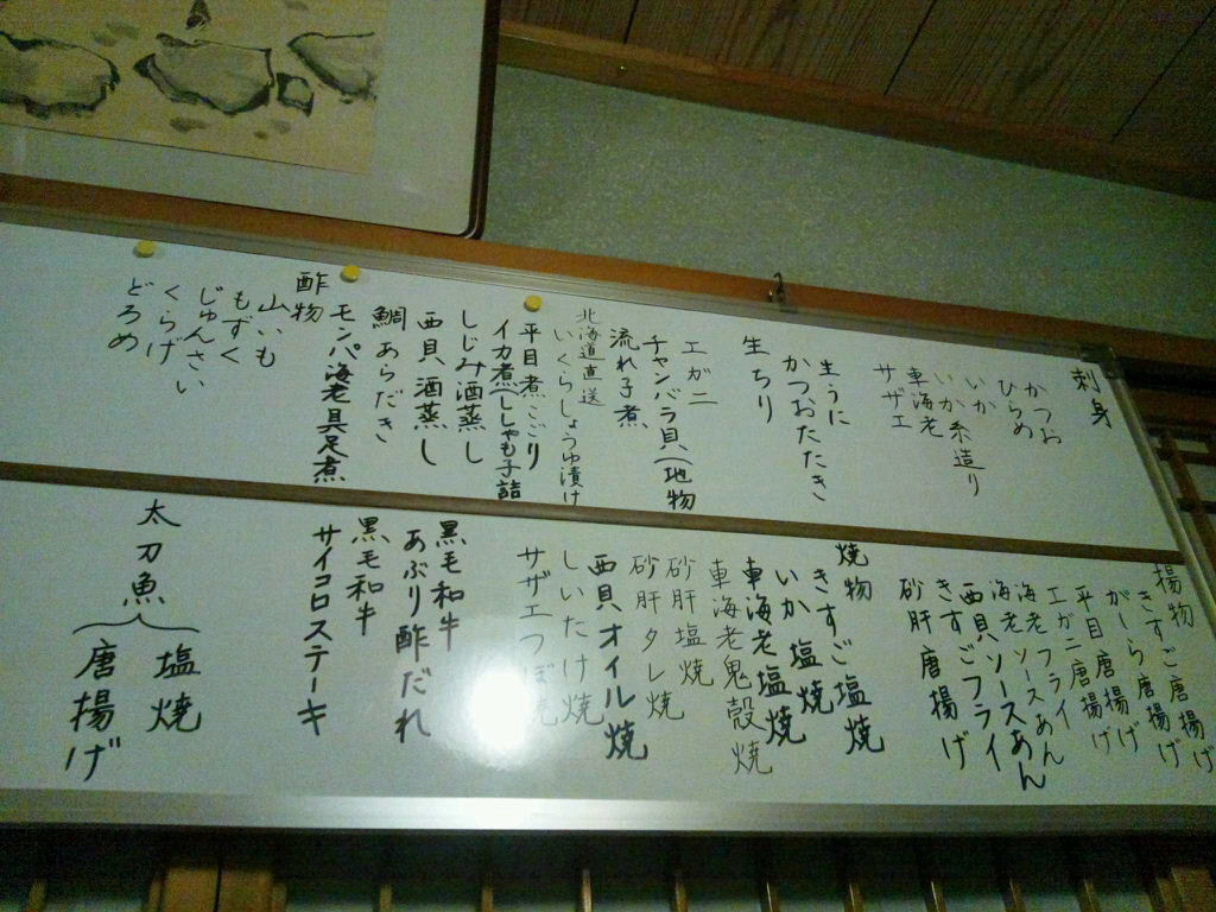 刺身
かつお
ひらめ
いか
いか糸造り
車海老
サザエ
生うに
かつおたたき
生ちり
エガニ
チャンバラ貝(地物
流れ子煮
北海道直送
いくらしょうゆ漬け
平目煮こごり
イカ煮(ししゃも子詰
しじみ酒蒸し
西貝酒蒸し
鯛あらだき
モンパ海老具足煮
酢物
山いも
もずく
じゅんさい
くらげ
どろめ
揚物
きすご唐揚げ
がしら唐揚げ
平目唐揚げ
エガニ唐揚げ
海老フライ
海老ソースあん
西貝ソースあん
きすごフライ
砂肝唐揚げ
焼物
きすご塩焼
いか塩焼
車海老塩焼
車海老鬼殻焼
砂肝塩焼
砂肝タレ焼
西貝オイル焼
しいたけ焼
サザエつぼ焼
黒毛和牛
あぶり酢だれ
黒毛和牛
サイコロステーキ
太刀魚
塩焼
唐揚げ